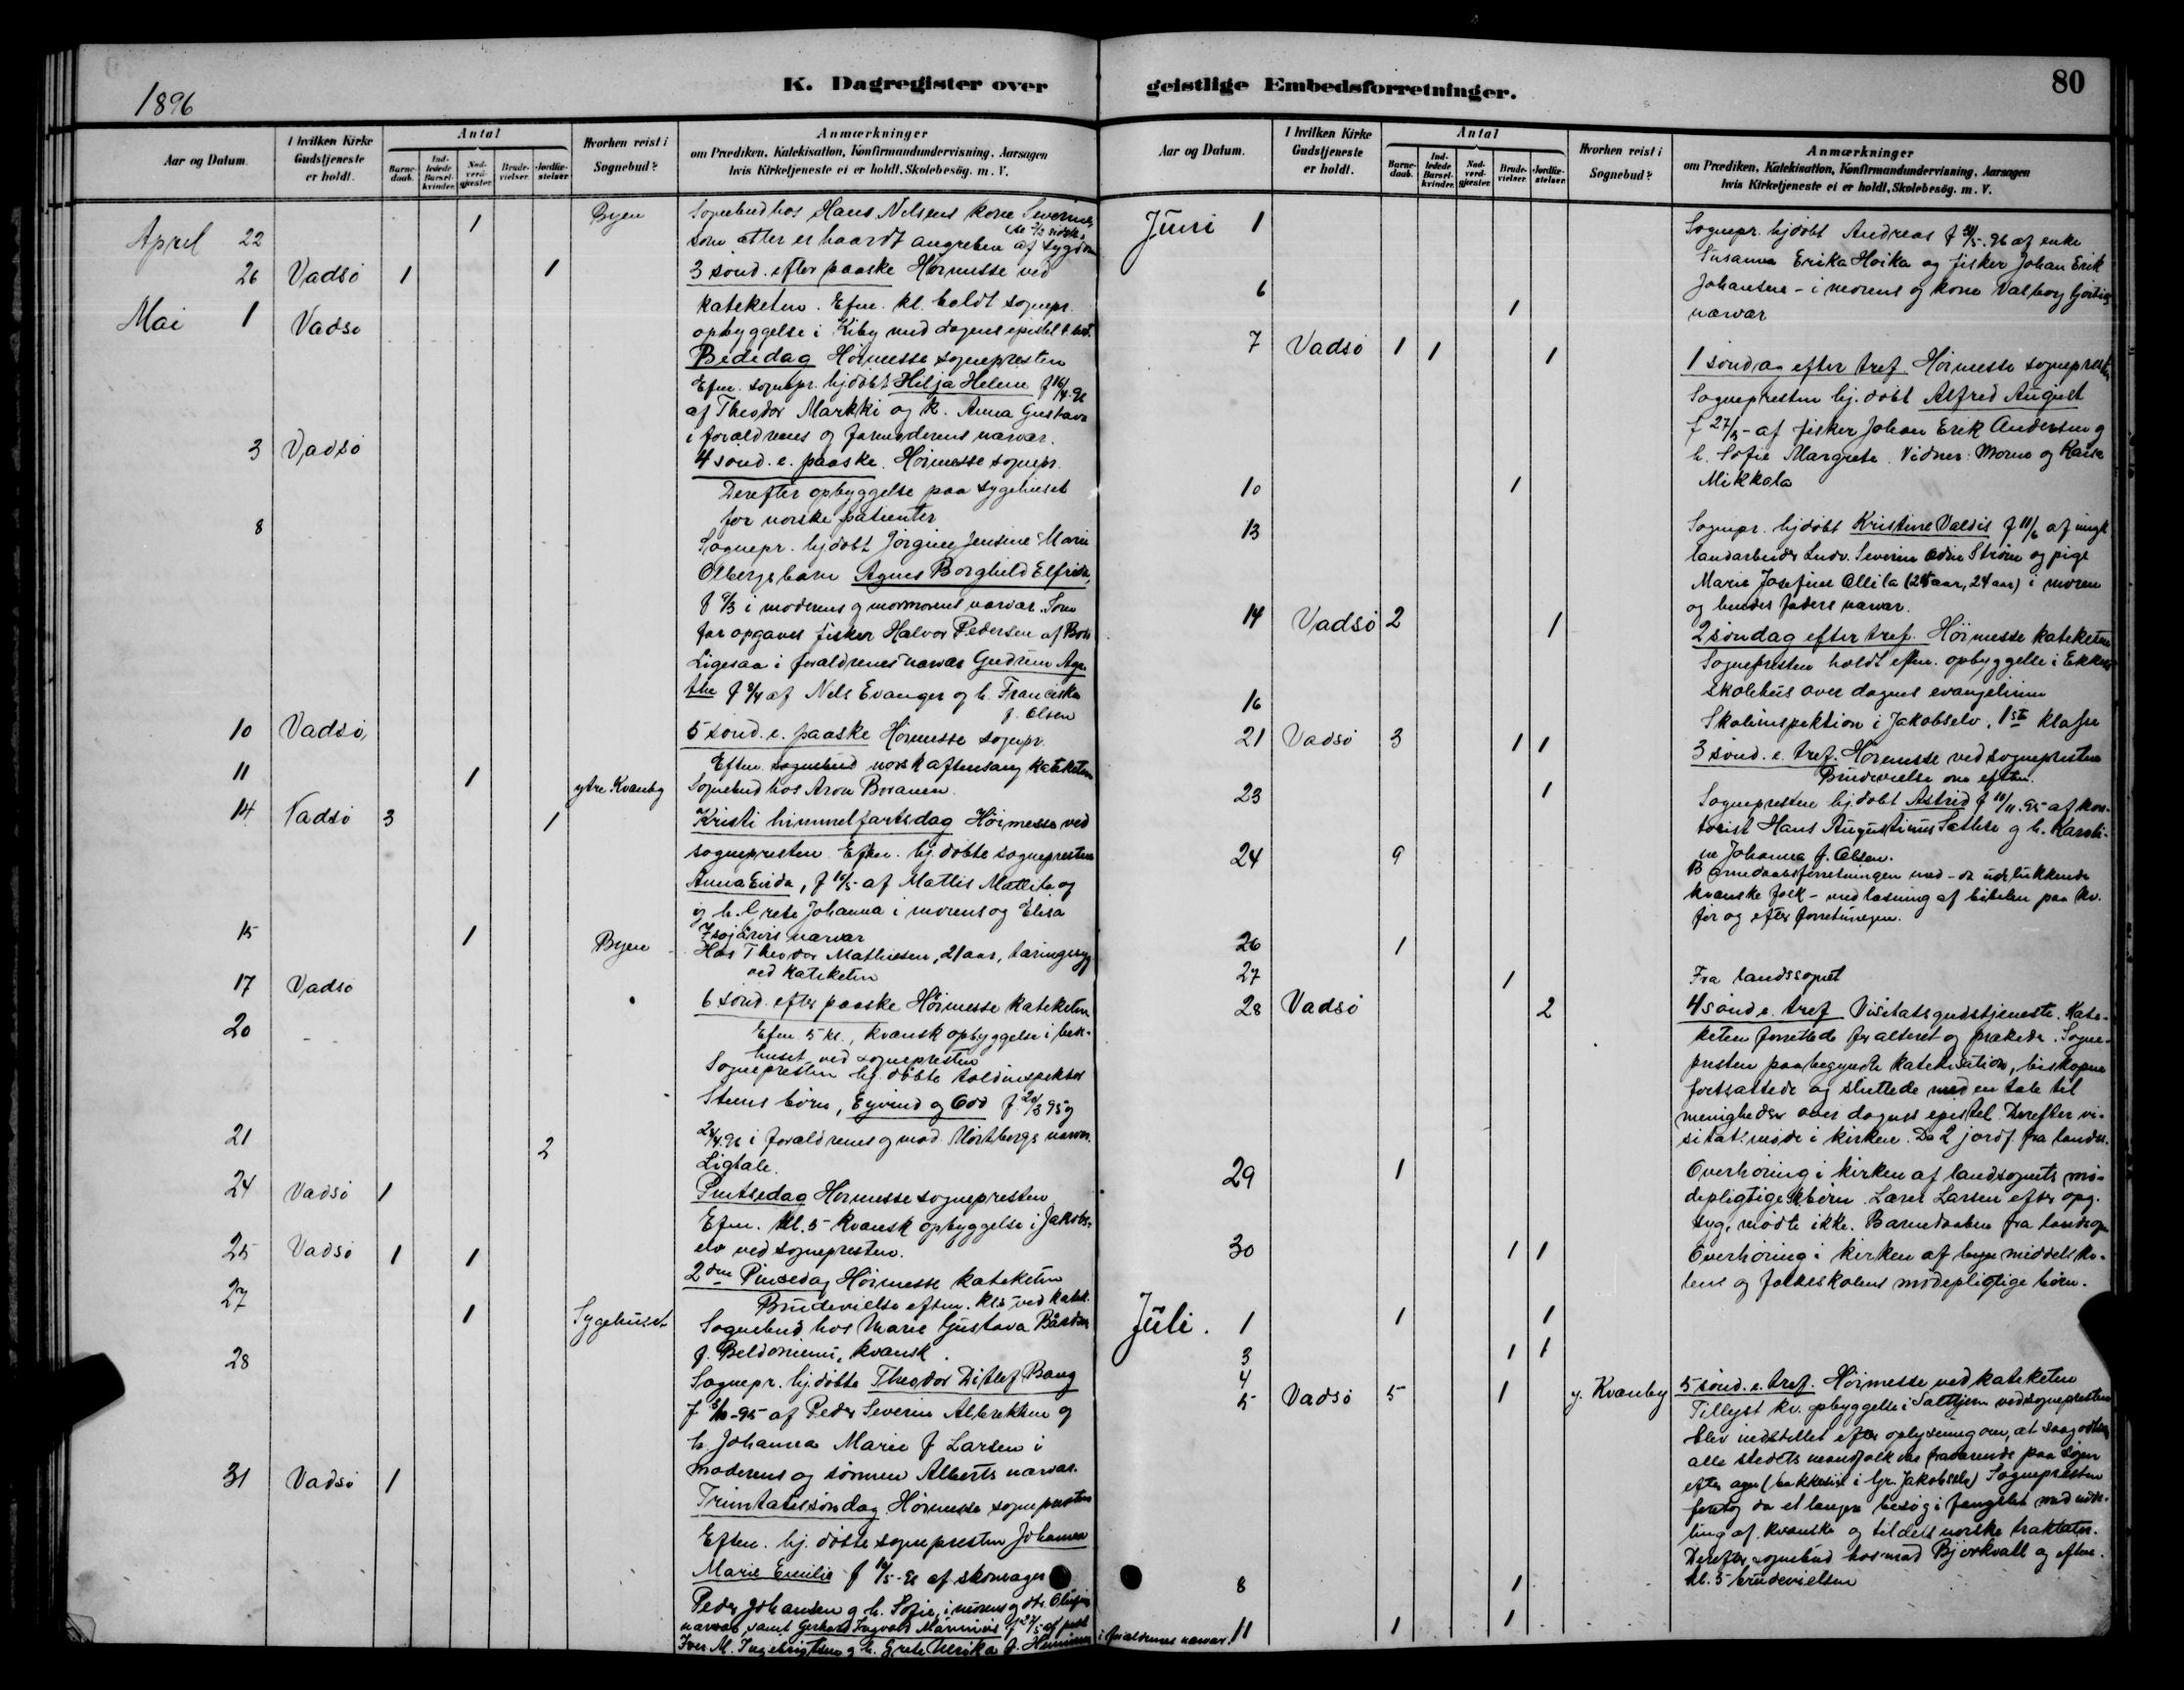 1896
K. Dagregister over
Aar og Datum.
I hvilken Kirke Gudstjeneste er holdt.
Antal
Barnedaab.
Indledede Barselkvinder.
Nadverdgjester.
Brudevielser.
Jordfæstelser.
Hvorhen reist i Sognebud?
Anmærkninger
om Prædiken, Katekisation, Konfirmandundervisning, Aarsagen
hvis Kirketjeneste ei er holdt, Skolebesög. m. V.
April 22 1 Byen Sognebud hos Hans Nilsens kone Severine,
som atter er haardt angreben af sygdom
26 Vadsö 1 1 3 sönd. efter paaske Höimesse ved
kateketen. Efm. kl. holdt sognepr.
Mai 1 Vadsö opbyggelse i Kiby med dagens epistel t. text.
Bededag Höimesse sognepresten
Efm. sognepr. hjdöbt Hilja Helene f 16/4 96
af Theodor Markki og k. Anna Gustava
i forældrenes og farmoderens nærvær.
3 Vadsö 4 sönd. e. paaske. Höimesse sognepr.
Derefter opbyggelse paa sygehuset
for norske patienter
8 Sognepr. hjdöbt Jörgine Jensine Marie
Olbergs barn Agnes Borghild Elfrida,
i moderens og mormorens nærvær. Som
far opgaves fisker Halvor Pedersen af
Ligesaa i forældrenes nærvær Gudrun Aga-
the f af Nels Evanger og h. Franciska
f. Olsen
10 Vadsö, 5 sönd. e. paaske Höimesse sognepr.
Eftm. sognebud norsk aftensang kateketen
11 1 ytre Kvænby Sognebud hos Aron
14 Vadsö 3 1 Kristi himmelfartsdag Höimesse ved
sognepresten Eftm. hj. döbte sognepresten
Anna Evida, f 10/5 af Mattis Mattila og
og h. Greta Johanna i morens og Elisa
nærvær
15 1 Byen Hos Theodor Mathiesen, 21 aar, tæringssyg
ved kateketen
17 Vadsö 6 sönd. efter paaske Höimesse kateketen
Efm 5 kl., kvænsk opbyggelse i bede-
huset ved sognepresten
20 Sognepresten hj. döbte toldinspektör
Steens börn, Eyvind og Odd f
i forældrenes og mad. nærvær.
21 2 Ligtale.
24 Vadsö 1 Pintsedag Höimesse sognepresten
Efm. kl. 5 kvænsk opbyggelse i Jakobs-
elv ved sognepresten.
25 Vadsö 1 1 2den Pinsedag Höimesse kateketen
Brudevielse eftm. kl 5 ved katek.
27 1 Sygehuset Sognebud hos Marie Gustava
f. Beldoniemi, kvænsk.
28 Sognepr. hj. döbte Theodor Ditlef Bang
95 af Peder Severin Albrektsen og
h. Johanna Marie f Larsen i
moderens og sönnen Alberts nærvær.
31 Vadsö 1 Trinitatissöndag. Höimesse sognepresten
Eftm. hj. döbte sognepresten Johanna
Marie Emilie f af skomager
Peder Johansen og h. Sofie, i morens og
nærvær, samt Gerhard Ingvald Marinius
Iver M. Ingebrigtsen og h. Grete Ulrika f.
i forældrenes nærvær.
geistlige Embedsforretninger.
80
Aar og Datum.
I hvilken Kirke Gudstjeneste er holdt.
Antal
Barnedaab.
Indledede Barselkvinder.
Nadverdgjester.
Brudevielser.
Jordfæstelser.
Hvorhen reist i Sognebud?
Anmærkninger
om Prædiken, Katekisation, Konfirmandundervisning, Aarsagen
hvis Kirketjeneste ei er holdt, Skolebesög. m. V.
Juni 1 Sognepr. hjdöbt Andreas f 96 af enke
Susanna Erika Hoika og fisker Johan Erik
Johansen - i morens og kone Valborg
6 1 nærvær
7 Vadsö 1 1 1 1 söndag efter tref Höimesse sognepresten
Sognepresten hj. döbt Alfred August
f 27/5 - af fisker Johan Erik Andersen og
h. Sofie Margrete. Vidner: Moren og Kaisa
10 1 Mikkola
13 Sognepr. hjdöbt Kristine Valdis f 11/6 af ungk
landarbeider Ludv. Severin Odin Ström og pige
Marie Josefine Ollila (25 aar, 24 aar) i moren
og hendes faders nærvær.
14 Vadsö 2 1 2 söndag efter tref. Höimesse kateketen
Sognepresten holdt eftm. opbyggelse i Ekkerö
skolehus over dagens evangelium
16 Skoleinspektion i Jakobselv. 1ste klasse
21 Vadsö 3 1 1 3 sönd. e. tref. Höimesse ved sognepresten
Brudevielse om eftm.
23 1 Sognepresten hj. döbt Astrid f 10/11. 95 af kon-
torist Hans Augustinus Sæther og h. Karoli-
ne Johanna f. Olsen.
24 9 Barnedaabsforretningen med - da udelukkende
kvænske folk - med læsning af bibelen paa kv.
för og efter forretningen.
26 1
27 1 Fra landssognet
28 Vadsö 2 4 sönd e. tref Visitatsgudstjeneste. Kate-
keten forrettede for alteret og prækede. Sogne-
presten paabegyndte katekisation, biskopen
fortsattede og sluttede med en tale til
menigheden over dagens epistel. Derefter vi-
sitatsmöde i kirken. De 2 jordf. fra landss.
29 1 Overhöring i kirken af landsognets mö-
depligtige börn. Lærer Larsen efter opg.
syg, mödte ikke. Barnedaaben fra landsogn
30 1 1 Overhöring i kirken af byens middelsko-
lens og folkeskolens mödepligtige börn.
Juli. 1 1 1
3 1 1
4
5 Vadsö 5 1 y. Kvænby 5 sönd. e. tref. Höimesse ved kateketen
Tillyst kv. opbyggelse i Salttjern ved sognepresten
blev indstillet efter oplysning om, at saagodtsom
alle stedets mandfolk var fraværende paa sögen
efter agn (bakkesild i Gr. Jakobselv) Sognepresten
foretog da et længre besög i fængslet med udde-
ling af kvænske og tildels norske traktater.
Derefter sognebud hos mad Björkvall og eftm.
kl. 5 brudevielsen
8 1
11 1 1